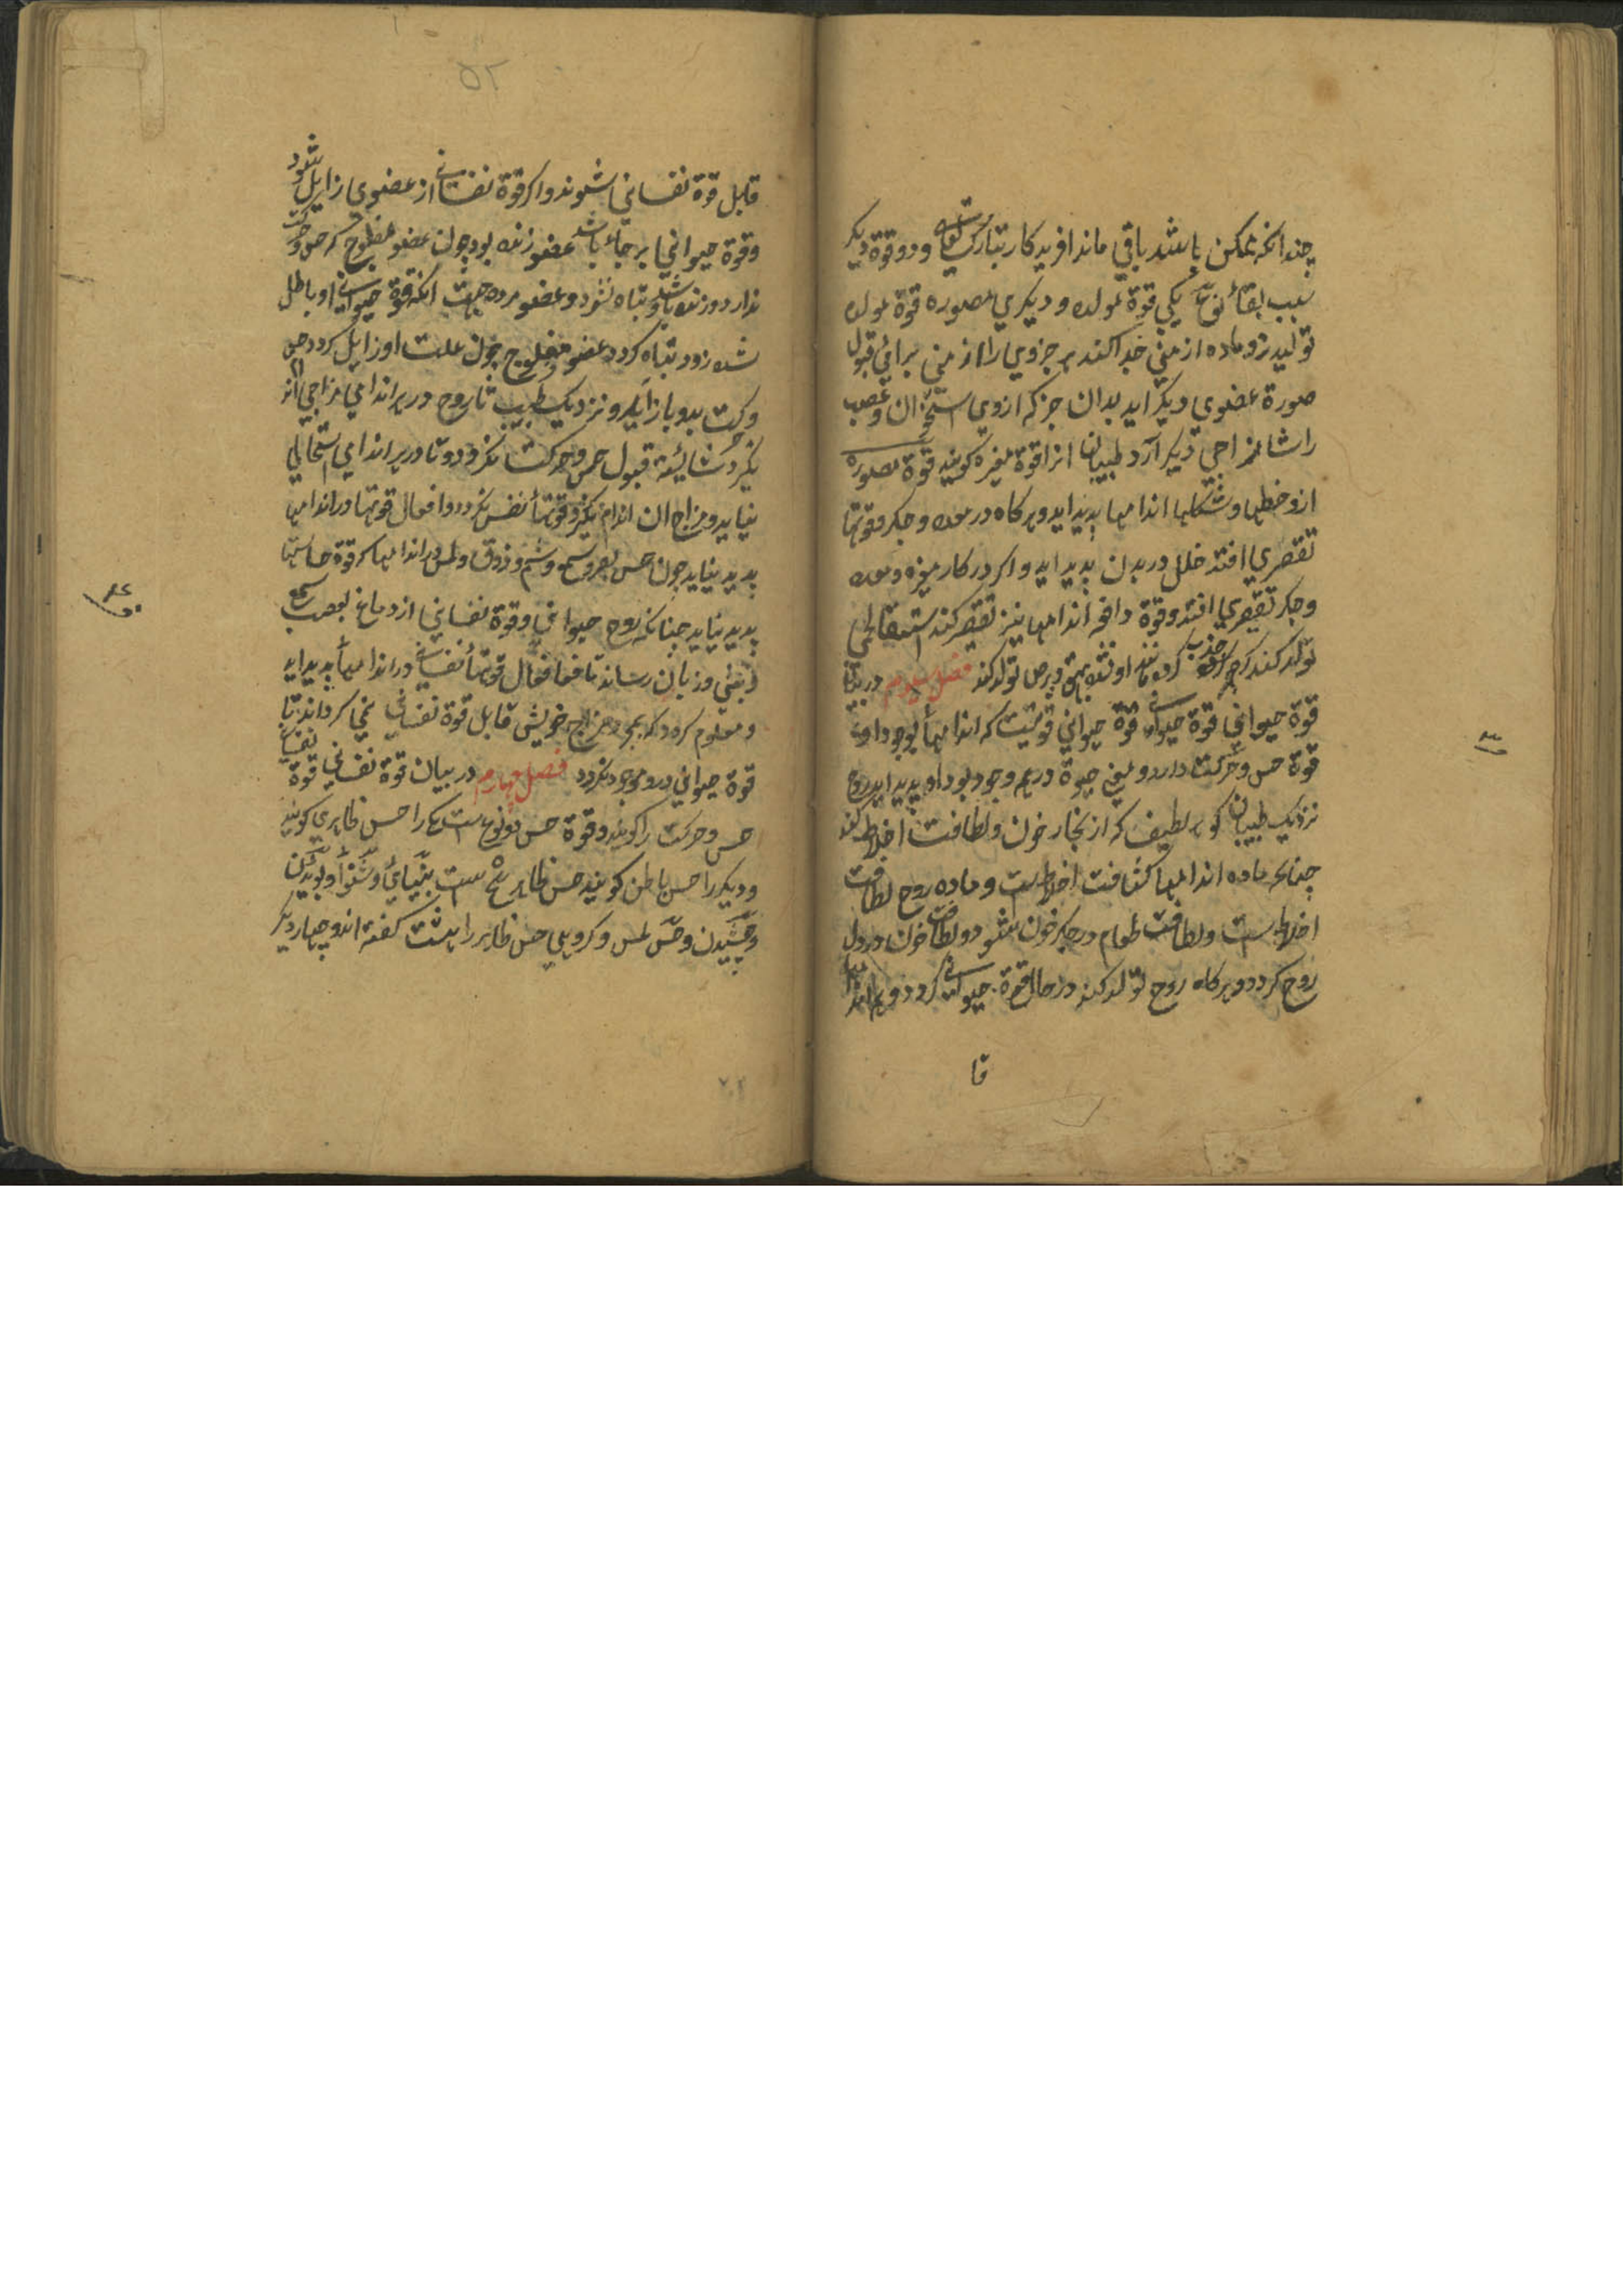 چندانکه ممکن باشد باقی ماند افریدکار تبارک و تعالی و دو قوة دیکر
سبب بقاء نوع یکی قوة مولده و دیکری مصوره قوة مولده
تولید نر و ماده از منی جدا کند هر جزوی را از منی برای قبول
صورة عضوی دیکر اید بدان جز که ازوی استخوان و عصب
را شاید مزاجی دیکر آرد طبیبان انرا قوة مغیره کویند قوة مصوره
ازو خطها و شکلها اندامها پدید اید و هرکاه در معده و جکر و قوتها
تقصیری افتد خلل در بدن پدید اید و اکر در کار ممیزه و معده
و جکر تقصیری افتد و قوة دافعه اندامها نیز تقصیر کند استسقا لحمی
تولد کند اکر جذب کردن افتد بهق و برص تولد کند فصل سوم در بیان
قوة حیوانی قوة حیوانی قوتیست که اندامها بوجود او
قوة حس و حرکت دارد و یعنی حیوة در جسم وجود بود او پدید اید روح
نزدیک طبیبان کوهر لطیف که از بخار خون و لطافت اخلاط
چنانکه ماده اندامها کثافت اخلاطست و ماده روح لطافت
اخلاطست و لطافت طعام در جکر خون شود و لطافت خون در دل
روح کردد و هرکاه روح تولد کند در حال قوة حیوانی کردد و همه اندامها
قا
۵۲
قابل قوة نفسانی شوند و اکر قوة نفسانی از عضوی زایل شود
و قوة حیوانی برجاء باشد عضو زنده بود چون عضو مفلوج که حس و حرکت
ندارد و زنده باشد و تباه نشود و عضو مرده جهت انکه قوة حیوانی او باطل
شده زود تباه کردد عضو مفلوج چون علت او زایل کردد حس
و حرکت بدو باز آید و نزدیک طبیب تا روح در هر اندامی مزاجی
نکیرد شایسته قبول حس و حرکت نکردد و تا در هر اندامی استحالتی
نیاید و مزاج ان اندام نکیرد قوتها نفس نکردد و افعال قوتها در اندامها
پدید نیاید چون حس بصر و سمع و شم و ذوق و لمس در اندامها که قوة حاستها
پدید نیاید چنانکه روح حیوانی و قوة نفسانی از دماغ بعصب سمع
و بینی و زبان رساند تا افعال قوتها نفسانی در اندامها پدید اید
و معلوم کردد که مزاج خویش قابل قوة نفسانی نمی کرداند تا
قوة حیوانی درو موجود نکردد فصل چهارم در بیان قوة نفسانی قوة نفسانی
حس و حرکت را کویند و قوة حس دو نوع ست یکی را حس ظاهری کویند
و دیکر را حس باطن کویند حس ظاهر پنج ست بینائی و شنوا و بوئیدن
و چشیدن و حس لمس و کروهی حس ظاهر را هشت کفته اند و چهار دیکر